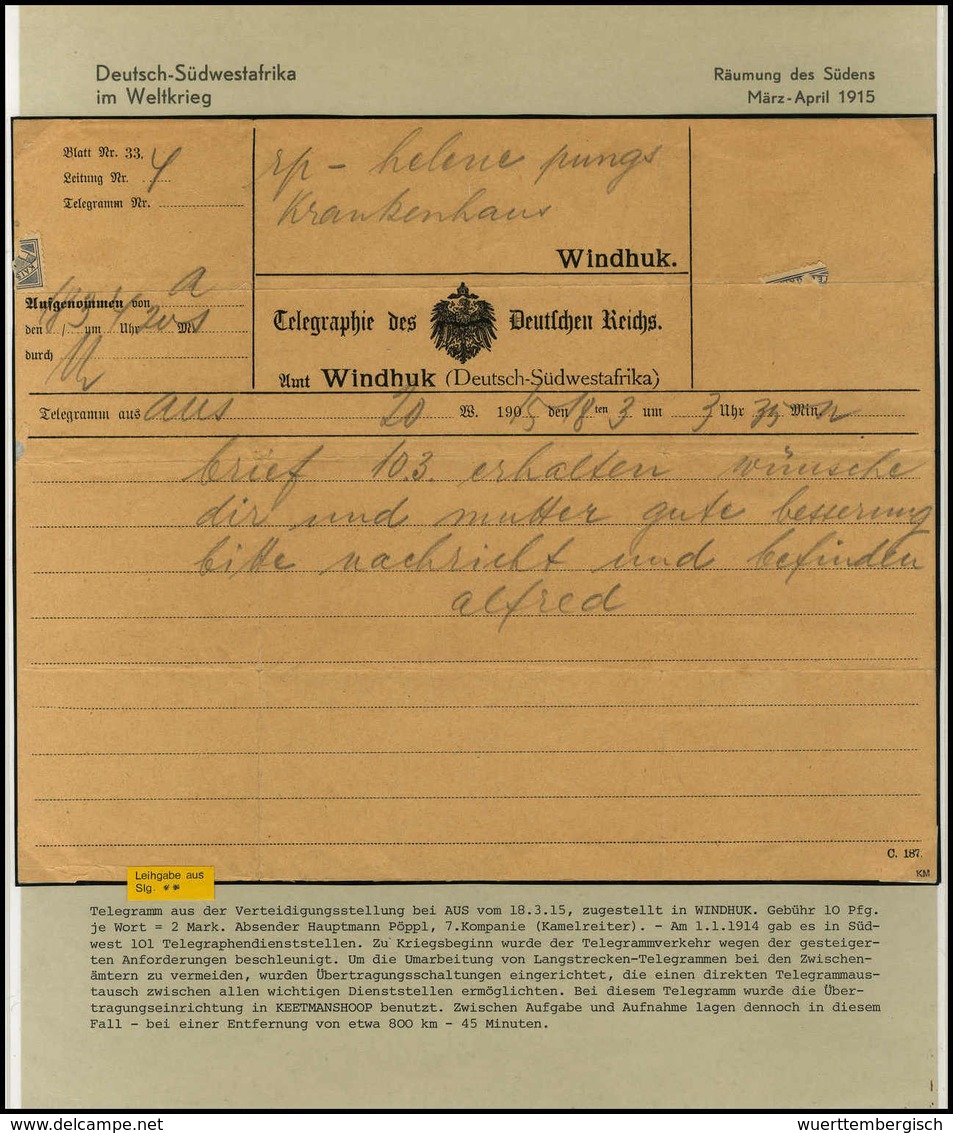 Deutsch-Südwestafrika
im Weltkrieg
Räumung des Südens
März-April 1915
Blatt Nr. 33.
Leitung Nr. 4
Telegramm Nr.
rp - helene pungs
Krankenhaus
Windhuk.
KAIS
Aufgenommen von A
den 18/3 um Uhr M.
durch
Telegraphie des Deutschen Reichs.
Amt Windhuk (Deutsch-Südwestafrika)
Telegramm aus aus 20 W. 1915 den 18ten 3 um 3 Uhr 35 Min n
brief 10.3. erhalten wünsche
dir und mutter gute besserung
bitte nachricht und befinden
alfred
C. 187.
KM
Leihgabe aus
Slg. **
Telegramm aus der Verteidigungsstellung bei AUS vom 18.3.15, zugestellt in WINDHUK. Gebühr 10 Pfg.
je Wort = 2 Mark. Absender Hauptmann Pöppl, 7.Kompanie (Kamelreiter). - Am 1.1.1914 gab es in Süd-
west 101 Telegraphendienststellen. Zu Kriegsbeginn wurde der Telegrammverkehr wegen der gesteiger-
ten Anforderungen beschleunigt. Um die Umarbeitung von Langstrecken-Telegrammen bei den Zwischen-
ämtern zu vermeiden, wurden Übertragungsschaltungen eingerichtet, die einen direkten Telegrammaus-
tausch zwischen allen wichtigen Dienststellen ermöglichten. Bei diesem Telegramm wurde die Über-
tragungseinrichtung in KEETMANSHOOP benutzt. Zwischen Aufgabe und Aufnahme lagen dennoch in diesem
Fall - bei einer Entfernung von etwa 800 km - 45 Minuten.
www.delcampe.net
wuerttembergisch